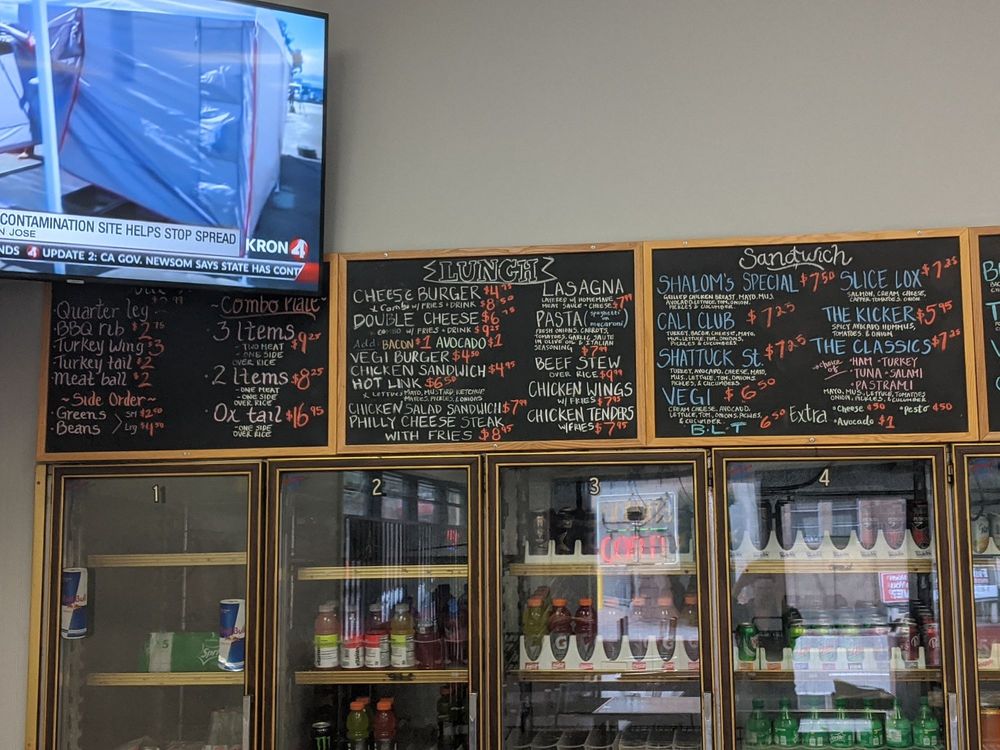 CONTAMINATION SITE HELPS STOP SPREAD
N JOSE
KRON 4
NDS 4 UPDATE 2: CA GOV. NEWSOM SAYS STATE HAS CONT
Quarter leg
BBQ rib $2.75
Turkey wing $3
Turkey tail $2
Meat ball $2
~Side Order~
Greens SM $2.00
Beans Lrg $4.50
~Combo Plate~
3 Items $9.25
-TWO MEAT
-ONE SIDE
OVER RICE
2 Items $8.25
-ONE MEAT
-ONE SIDE
OVER RICE
Ox tail $16.95
-ONE SIDE
OVER RICE
LUNCH
CHEESE BURGER
Combo W/ FRIES & DRINK
DOUBLE CHEESE $6
COMBO W/ FRIES & DRINK $9.25
Add: BACON $1 AVOCADO $1
VEGI BURGER $4.50
CHICKEN SANDWICH $4.95
HOT LINK $6.50
LETTUCE, MAYO, MUSTARD, KETCHUP
TOMATOES, PICKLES, & ONIONS
CHICKEN SALAD SANDWICH $7.99
PHILLY CHEESE STEAK
WITH FRIES $8.45
LASAGNA
LAYERED W/ HOMEMADE
MEAT SAUCE & CHEESE $7.99
PASTA spaghetti or macaroni
FRESH ONIONS, CARROTS,
TOMATOES, GARLIC SAUTE
IN OLIVE OIL & ITALIAN
SEASONING $7.99
BEEF STEW
OVER RICE $9.99
CHICKEN WINGS
W/ FRIES
CHICKEN TENDERS
W/ FRIES $7.95
Sandwich
SHALOM'S SPECIAL $7.50
GRILLED CHICKEN BREAST, MAYO, MUS,
AVOCADO, LETTUCE, TOM, ONIONS,
PICKLES & CUCUMBERS
CALI CLUB $7.25
TURKEY, BACON, CHEESE, MAYO,
MUS, LETTUCE, TOM, ONIONS,
PICKLES & CUCUMBERS
SHATTUCK St. $7.25
TURKEY, AVOCADO, CHEESE, MAYO,
MUS, LETTUCE, TOM, ONIONS,
PICKLES, & CUCUMBERS
VEGI $6.50
CREAM CHEESE, AVOCADO,
LETTUCE, TOM, ONIONS, PICKLES,
& CUCUMBER
B.L.T 6.50
SLICE LOX $7.25
SALMON, CREAM CHEESE,
CAPPER, TOMATOES, ONION
THE KICKER $5.95
SPICY AVOCADO HUMMUS,
TOMATOES, & ONION
THE CLASSICS $7.25
choice of
-HAM -TURKEY
-TUNA -SALAMI
-PASTRAMI
MAYO, MUS, LETTUCE, TOMATOES
ONION, PICKLES, & CUCUMBER
Extra •Cheese $.50 •Pesto $.50
•Avocado $1
1
2
3
4
Sprite